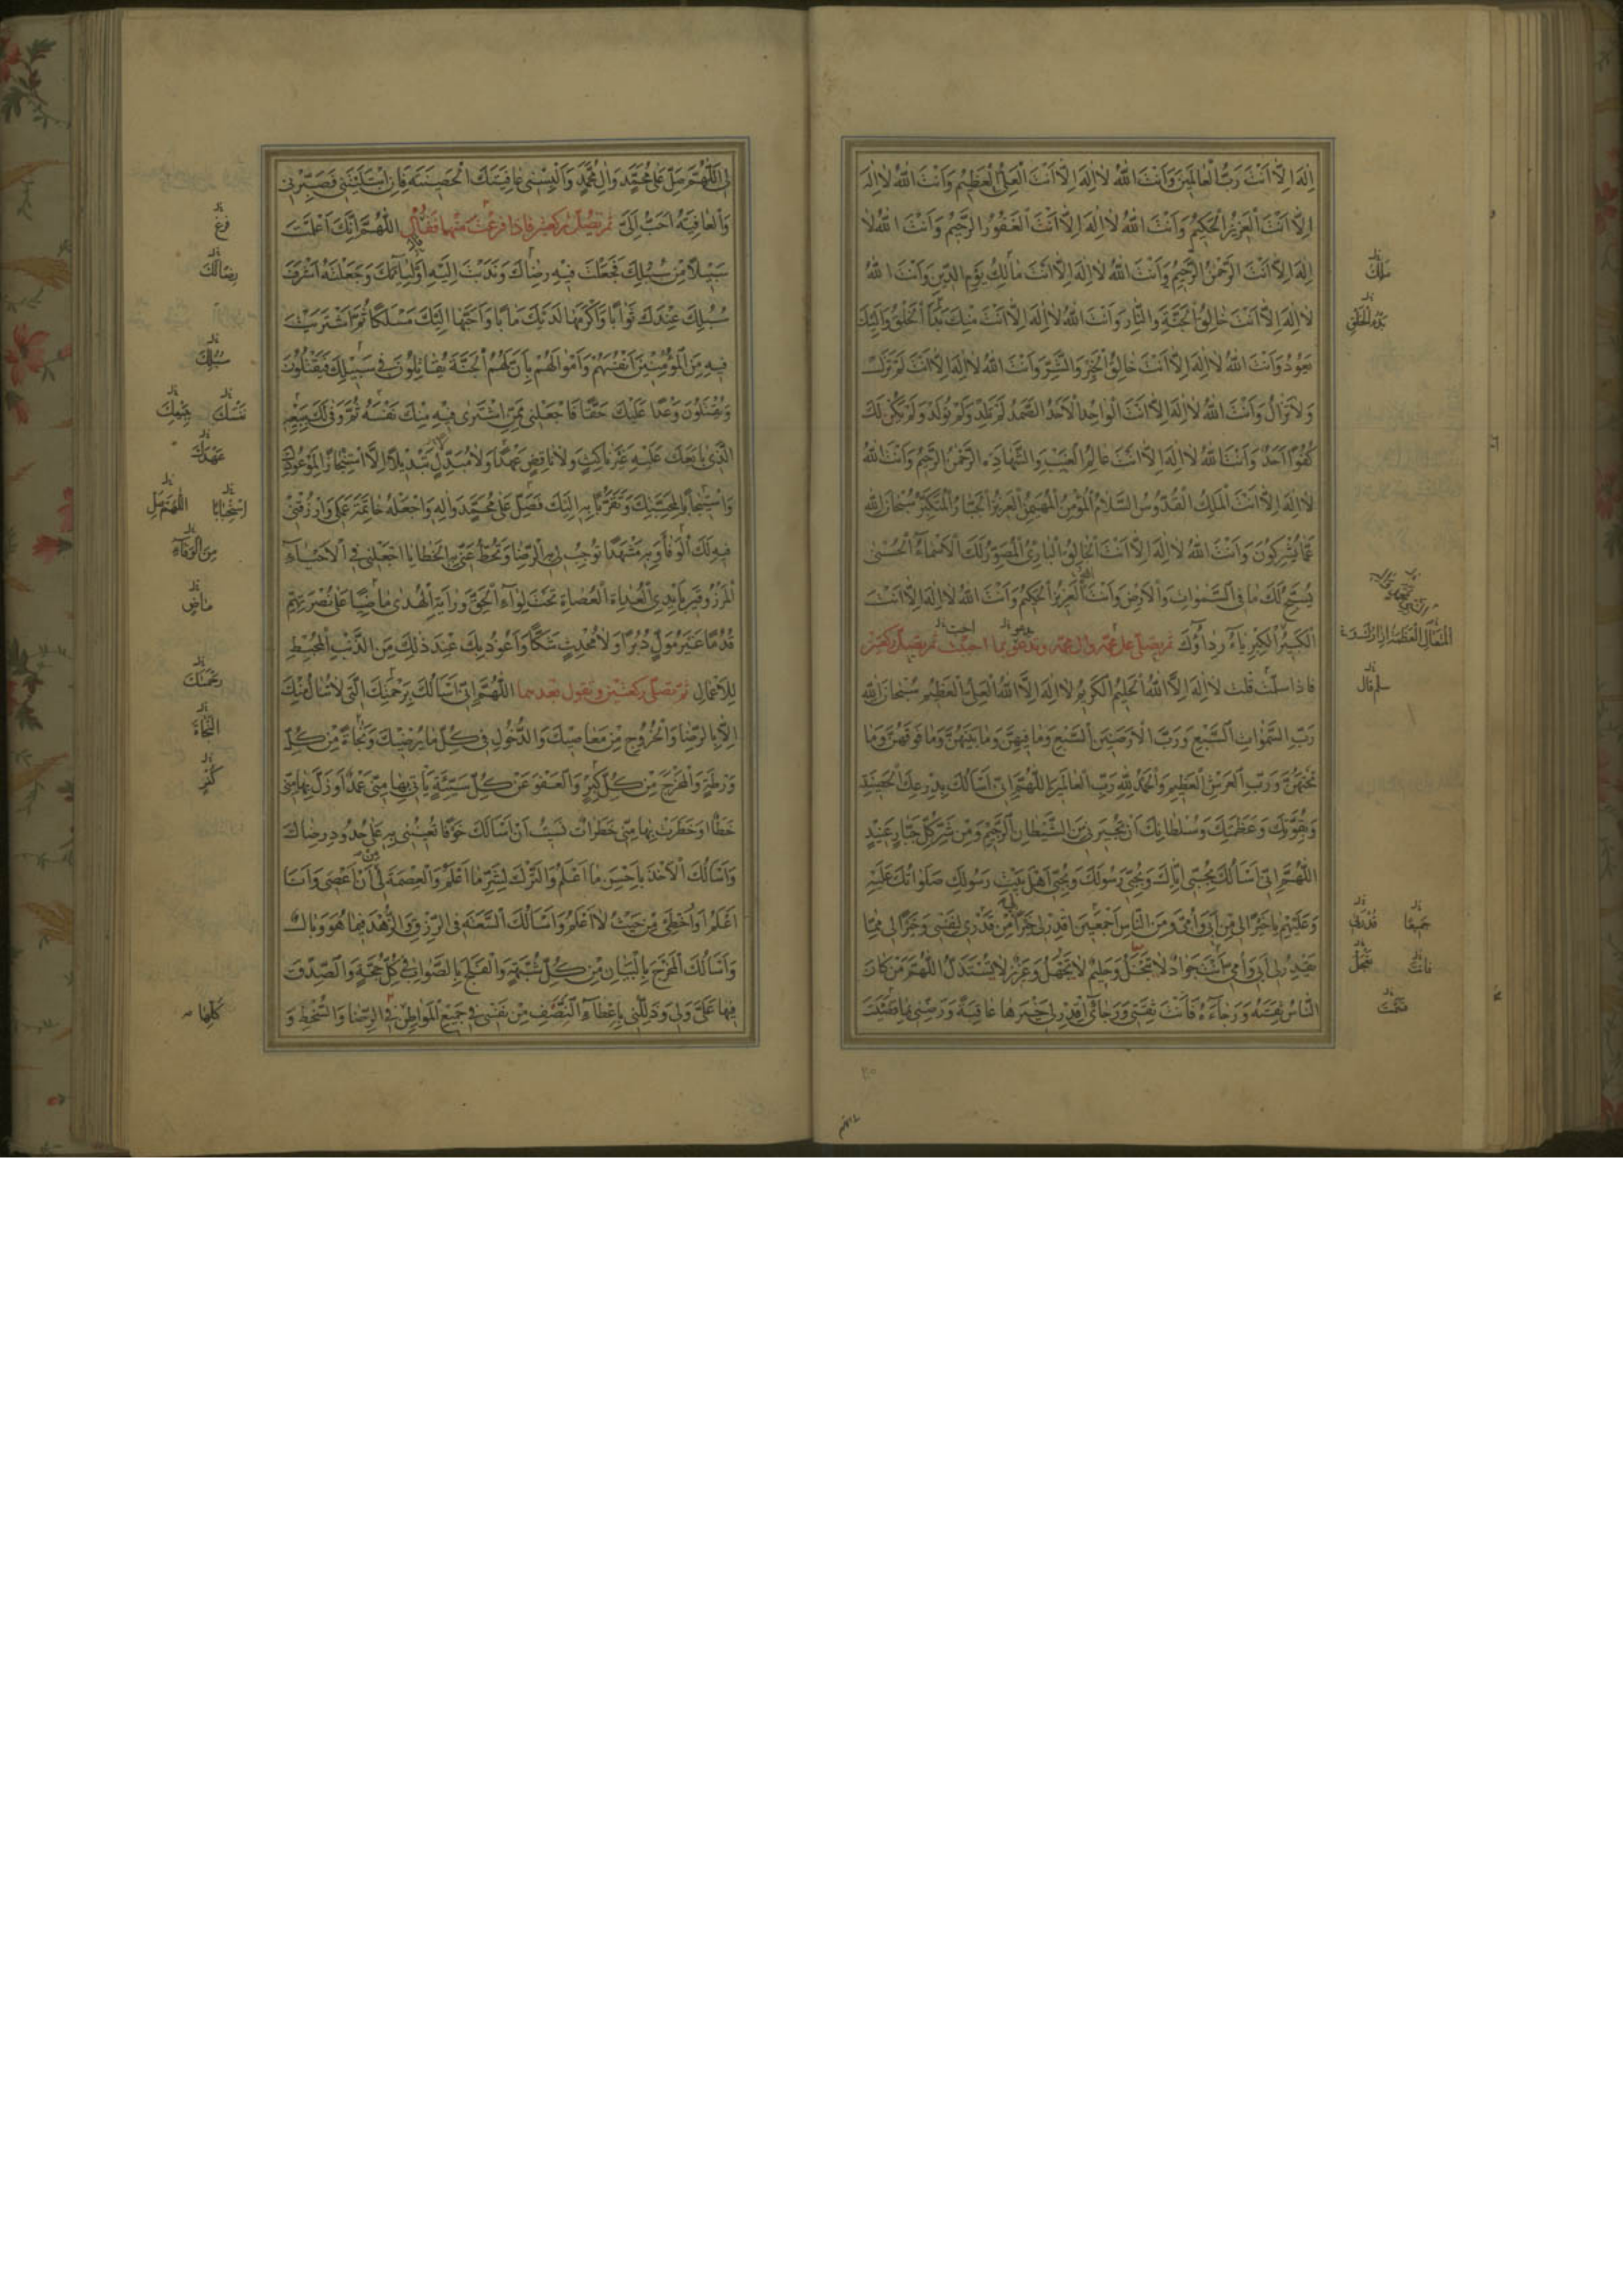 اِلٰهَ اِلَّا اَنْتَ رَبُّ الْعالَمينَ وَاَنْتَ اللّٰهُ لا اِلٰهَ اِلَّا اَنْتَ الْعَلِىُّ الْعَظيمُ وَاَنْتَ اللّٰهُ لا اِلٰهَ
اِلَّا اَنْتَ الْعَزيزُ الْحَكيمُ وَاَنْتَ اللّٰهُ لا اِلٰهَ اِلَّا اَنْتَ الْغَفُورُ الرَّحيمُ وَاَنْتَ اللّٰهُ لا
اِلٰهَ اِلَّا اَنْتَ الرَّحْمٰنُ الرَّحيمُ وَاَنْتَ اللّٰهُ لا اِلٰهَ اِلَّا اَنْتَ مالِكُ يَوْمِ الدّينِ وَاَنْتَ اللّٰهُ
لا اِلٰهَ اِلَّا اَنْتَ خالِقُ الْجَنَّةِ وَالنّارِ وَاَنْتَ اللّٰهُ لا اِلٰهَ اِلَّا اَنْتَ مِنْكَ بَدَأَ الْخَلْقُ وَاِلَيْكَ
يَعُودُ وَاَنْتَ اللّٰهُ لا اِلٰهَ اِلَّا اَنْتَ خالِقُ الْخَيْرِ وَالشَّرِّ وَاَنْتَ اللّٰهُ لا اِلٰهَ اِلَّا اَنْتَ لَمْ تَزَلْ
وَلا تَزالُ وَاَنْتَ اللّٰهُ لا اِلٰهَ اِلَّا اَنْتَ الْواحِدُ الْاَحَدُ الصَّمَدُ لَمْ يَلِدْ وَلَمْ يُولَدْ وَلَمْ يَكُنْ لَكَ
كُفُوًا اَحَدٌ وَاَنْتَ اللّٰهُ لا اِلٰهَ اِلَّا اَنْتَ عالِمُ الْغَيْبِ وَالشَّهادَةِ الرَّحْمٰنُ الرَّحيمُ وَاَنْتَ اللّٰهُ
لا اِلٰهَ اِلَّا اَنْتَ الْمَلِكُ الْقُدُّوسُ السَّلامُ الْمُؤْمِنُ الْمُهَيْمِنُ الْعَزيزُ الْجَبّارُ الْمُتَكَبِّرُ سُبْحانَ اللّٰهِ
عَمّا يُشْرِكُونَ وَاَنْتَ اللّٰهُ لا اِلٰهَ اِلَّا اَنْتَ الْخالِقُ الْبارِئُ الْمُصَوِّرُ لَكَ الْاَسْماءُ الْحُسْنى
يُسَبِّحُ لَكَ ما فِى السَّمٰواتِ وَالْاَرْضِ وَاَنْتَ الْعَزيزُ الْحَكيمُ وَاَنْتَ اللّٰهُ لا اِلٰهَ اِلَّا اَنْتَ
الْكَبيرُ الْكِبْرِياءُ رِداؤُكَ ثم تصلى على محمد وال محمد وتدعو بما احببت ثم تصلى ركعتين
فاذا سلّمت قلت لا اِلٰهَ اِلَّا اللّٰهُ الْحَليمُ الْكَريمُ لا اِلٰهَ اِلَّا اللّٰهُ الْعَلِىُّ الْعَظيمُ سُبْحانَ اللّٰهِ
رَبِّ السَّمٰواتِ السَّبْعِ وَرَبِّ الْاَرَضينَ السَّبْعِ وَما فيهِنَّ وَما بَيْنَهُنَّ وَما فَوْقَهُنَّ وَما
تَحْتَهُنَّ وَرَبِّ الْعَرْشِ الْعَظيمِ وَالْحَمْدُ لِلّٰهِ رَبِّ الْعالَمينَ اللّٰهُمَّ اِنّى اَسْأَلُكَ بِدِرْعِكَ الْحَصينَةِ
وَبِقُوَّتِكَ وَعَظَمَتِكَ وَسُلْطانِكَ اَنْ تُجيرَنى مِنَ الشَّيْطانِ الرَّجيمِ وَمِنْ شَرِّ كُلِّ جَبّارٍ عَنيدٍ
اللّٰهُمَّ اِنّى اَسْأَلُكَ بِحُبّى اِيّاكَ وَبِحُبّى رَسُولَكَ وَبِحُبّى اَهْلَ بَيْتِ رَسُولِكَ صَلَواتُكَ عَلَيْهِ
وَعَلَيْهِمْ يا خَيْرًا لى مِنْ اَبى وَاُمّى وَمِنَ النّاسِ اَجْمَعينَ اقْدِرْ لى خَيْرًا مِنْ قَدْرى لِنَفْسى وَخَيْرًا لى مِمّا
يَقْدِرُ لى اَبى وَاُمّى اَنْتَ جَوادٌ لا تَبْخَلُ وَحَليمٌ لا تَجْهَلُ وَعَزيزٌ لا يُسْتَذَلُّ اللّٰهُمَّ مَنْ كانَ
النّاسُ ثِقَتَهُ وَرَجاءَهُ فَاَنْتَ ثِقَتى وَرَجائى اقْدِرْ لى خَيْرَها عاقِبَةً وَرَضِّنى بِما قَضَيْتَ
لى اللّٰهُمَّ صَلِّ عَلى مُحَمَّدٍ وَالِ مُحَمَّدٍ وَاَلْبِسْنى عافِيَتَكَ الْحَصينَةَ فَاِنِ ابْتَلَيْتَنى فَصَبِّرْنى
وَالْعافِيَةُ اَحَبُّ اِلَىَّ ثم تصلى ركعتين فاذا فرغت منهما فقل اللّٰهُمَّ اِنَّكَ اَعْلَمْتَ
سَبيلًا مِنْ سُبُلِكَ فَجَعَلْتَ فيهِ رِضاكَ وَنَدَبْتَ اِلَيْهِ اَوْلِياءَكَ وَجَعَلْتَهُ اَشْرَفَ
سُبُلِكَ عِنْدَكَ ثَوابًا وَاَكْرَمَها لَدَيْكَ مَآبًا وَاَحَبَّها اِلَيْكَ مَسْلَكًا ثُمَّ اشْتَرَيْتَ
فيهِ مِنَ الْمُؤْمِنينَ اَنْفُسَهُمْ وَاَمْوالَهُمْ بِاَنَّ لَهُمُ الْجَنَّةَ يُقاتِلُونَ فى سَبيلِكَ فَيَقْتُلُونَ
وَيُقْتَلُونَ وَعْدًا عَلَيْكَ حَقًّا فَاجْعَلْنى مِمَّنِ اشْتَرى فيهِ مِنْكَ نَفْسَهُ ثُمَّ وَفى لَكَ بِبَيْعِهِ
الَّذى بايَعَكَ عَلَيْهِ غَيْرَ ناكِثٍ وَلا ناقِضٍ عَهْدًا وَلا مُبَدِّلٍ تَبْديلًا اِلَّا اسْتِنْجازًا لِمَوْعُودِكَ
وَاسْتيجابًا لِمَحَبَّتِكَ وَتَقَرُّبًا بِهِ اِلَيْكَ فَصَلِّ عَلى مُحَمَّدٍ وَالِهِ وَاجْعَلْهُ خاتِمَةَ عَمَلى وَارْزُقْنى
فيهِ لَكَ الْوَفاءَ وَبِهِ مَشْهَدًا تُوجِبُ لى بِهِ الرِّضا وَتَحُطُّ عَنّى بِهِ الْخَطايا اجْعَلْنى فِى الْاَحْياءِ
الْمَرْزُوقينَ بِاَيْدِى الْعُداةِ الْعُصاةِ تَحْتَ لِواءِ الْحَقِّ وَرايَةِ الْهُدى ماضِيًا عَلى نُصْرَتِهِمْ
قُدُمًا غَيْرَ مُوَلٍّ دُبُرًا وَلا مُحْدِثٍ شَكًّا وَاَعُوذُ بِكَ عِنْدَ ذٰلِكَ مِنَ الذَّنْبِ الْمُحْبِطِ
لِلْاَعْمالِ ثم تصلّى ركعتين وتقول بعدهما اللّٰهُمَّ اِنّى اَسْأَلُكَ بِرَحْمَتِكَ الَّتى لا تُنالُ مِنْكَ
اِلَّا بِالرِّضا وَالْخُرُوجَ مِنْ مَعاصيكَ وَالدُّخُولَ فى كُلِّ ما يُرْضيكَ وَنَجاةً مِنْ كُلِّ
وَرْطَةٍ وَالْمَخْرَجَ مِنْ كُلِّ كَبيرٍ وَالْعَفْوَ عَنْ كُلِّ سَيِّئَةٍ يَأْتى بِها مِنّى عَمْدٌ اَوْ زَلَّ بِها مِنّى
خَطَأٌ اَوْ خَطَرَتْ بِها مِنّى خَطَراتٌ نَسيتُ اَنْ اَسْأَلَكَ خَوْفًا تُعينُنى بِهِ عَلى حُدُودِ رِضاكَ
وَاَسْأَلُكَ الْاَخْذَ بِاَحْسَنِ ما اَعْلَمُ وَالتَّرْكَ لِشَرِّ ما اَعْلَمُ وَالْعِصْمَةَ لى اَنْ اَعْصِىَ وَاَنَا
اَعْلَمُ اَوْ اُخْطِئَ مِنْ حَيْثُ لا اَعْلَمُ وَاَسْأَلُكَ السَّعَةَ فِى الرِّزْقِ وَالزُّهْدَ فيما هُوَ وَبالٌ
وَاَسْأَلُكَ الْمَخْرَجَ بِالْبَيانِ مِنْ كُلِّ شُبْهَةٍ وَالْفَلَجَ بِالصَّوابِ فى كُلِّ حُجَّةٍ وَالصِّدْقَ
فيها عَلَىَّ وَلى وَذَلِّلْنى بِاِعْطاءِ النَّصَفِ مِنْ نَفْسى فى جَميعِ الْمَواطِنِ فِى الرِّضا وَالسَّخَطِ وَ
مَلِكُ
بَدْءُ الْخَلْقِ
سلم قال
جَميعًا
فانت
فرغ
رضالك
سُبُلِكَ
عَهْدَكَ
اللّٰهم صل
مِنَ الْوَفاءِ
ماضٍ
رَحْمَتَكَ
النَّجاةَ
كلها